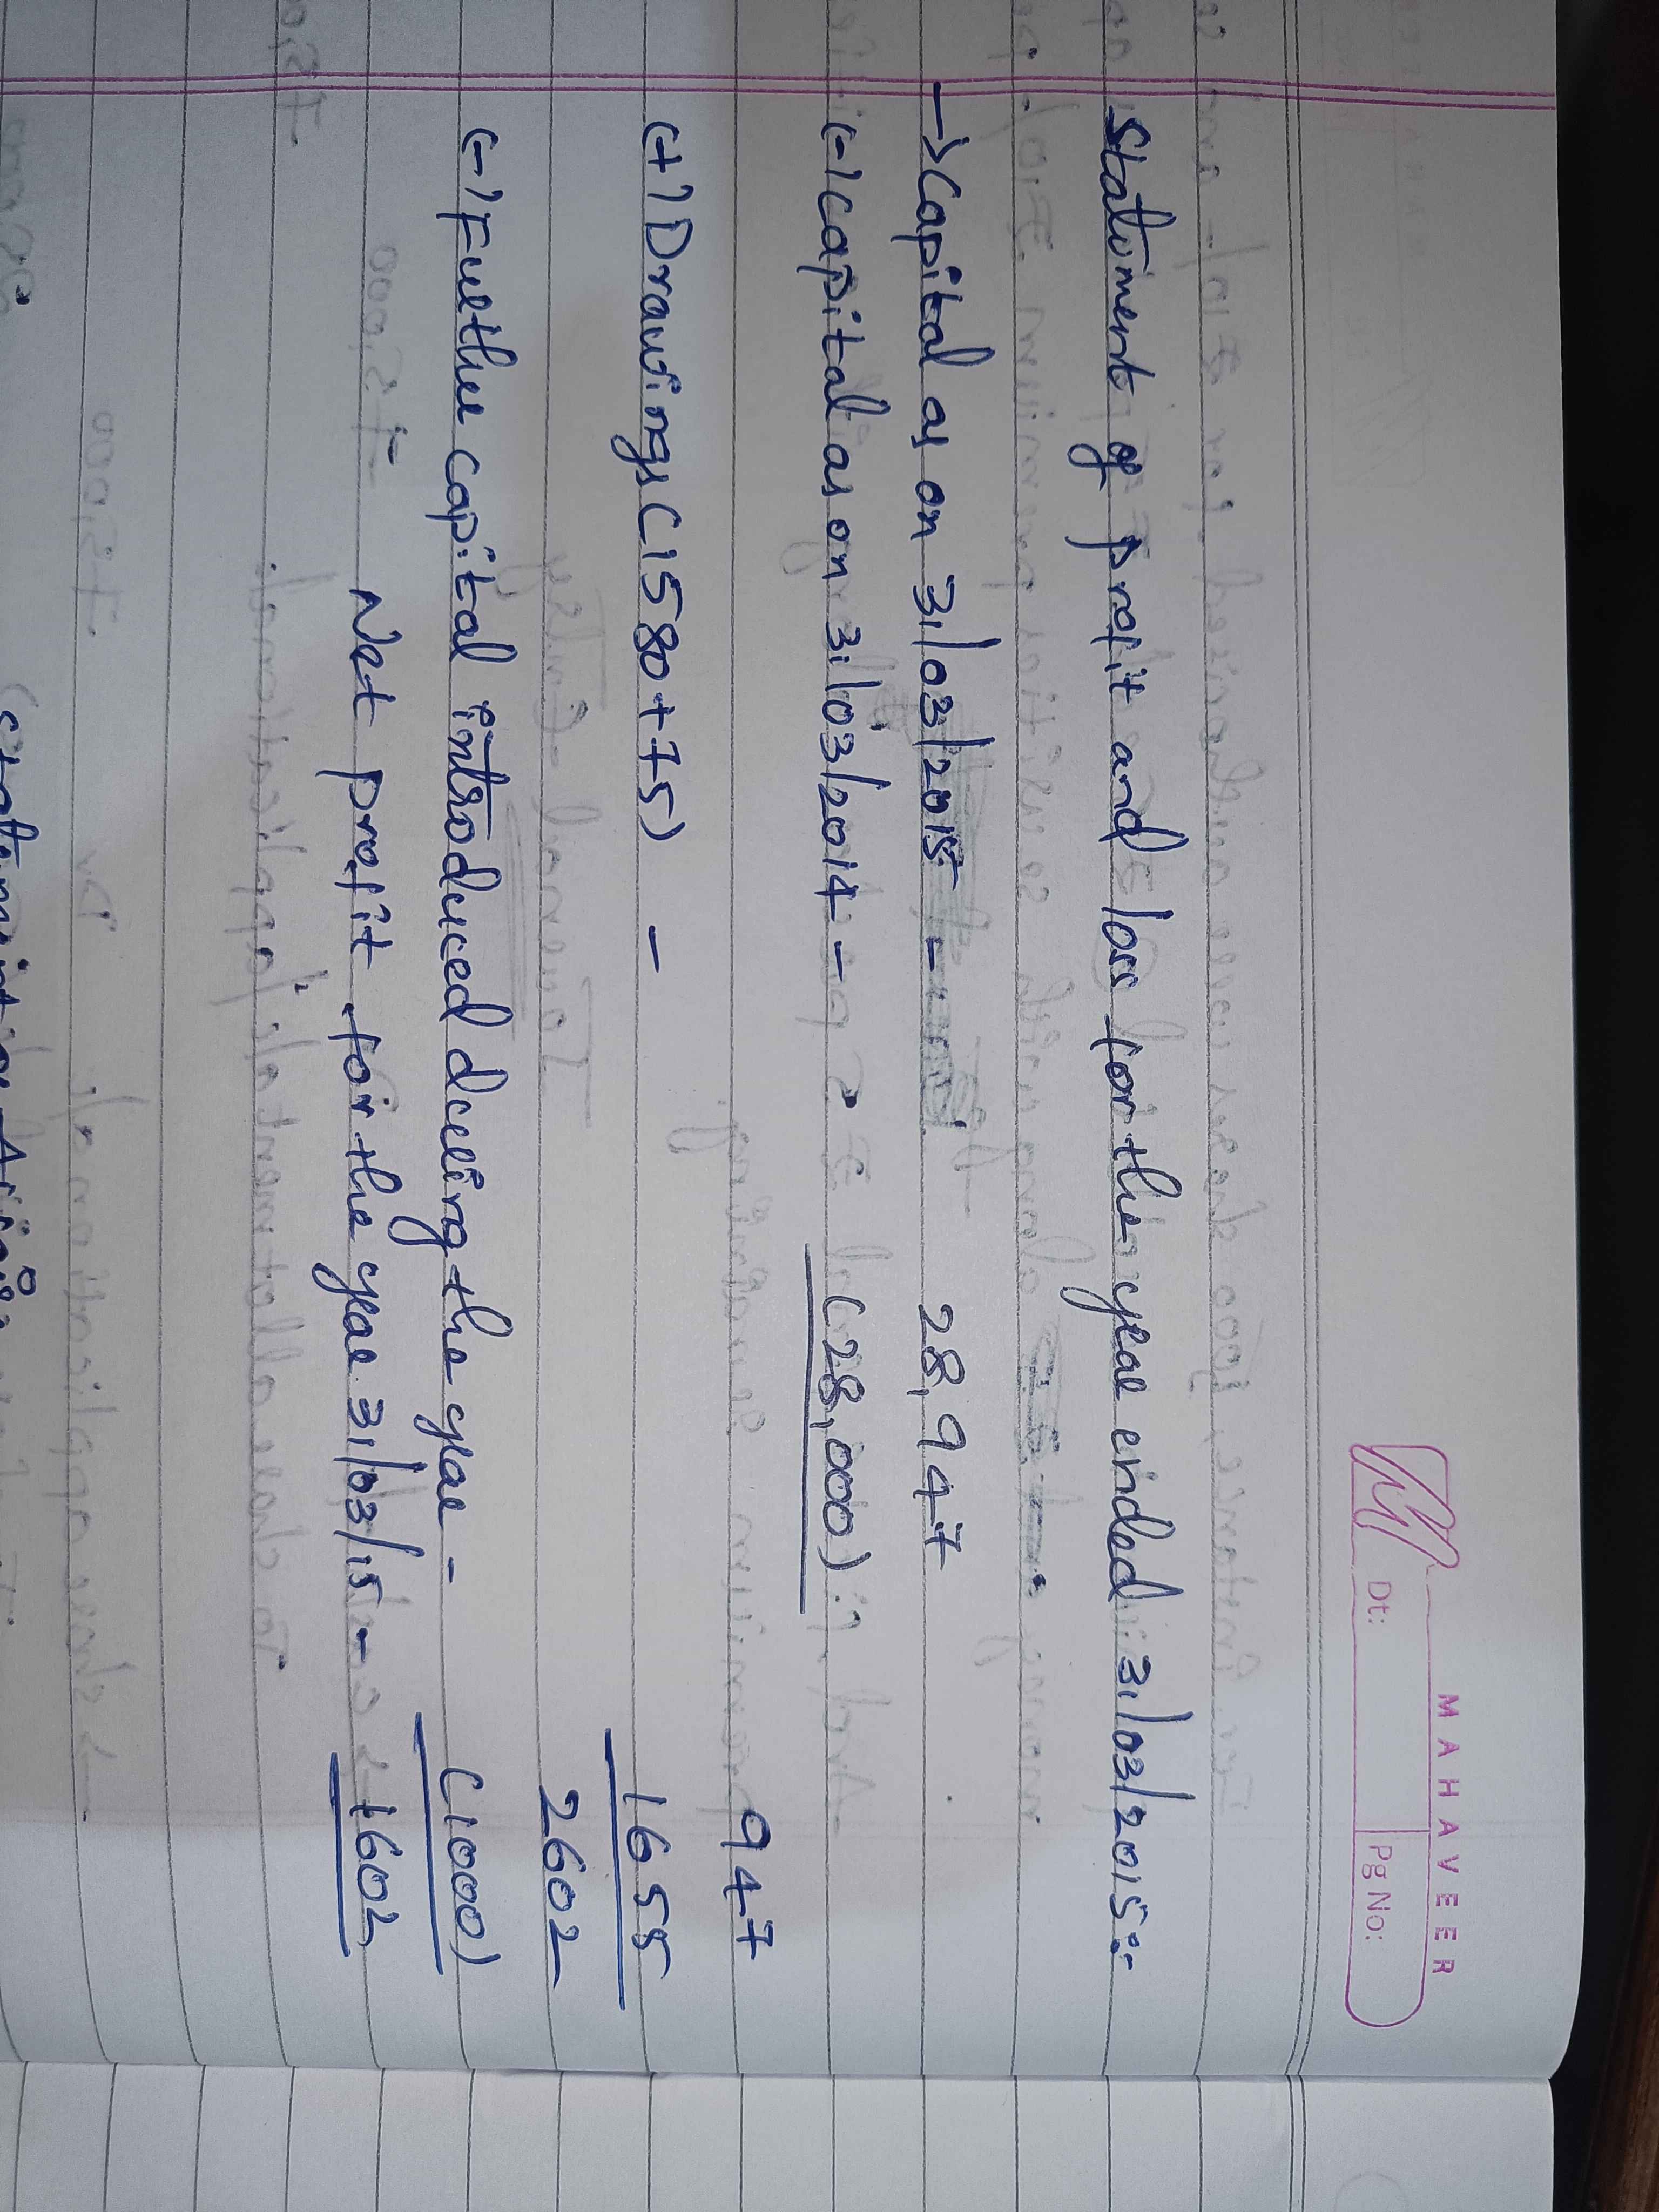 MAHAVEER
Dt: Pg No:
Statement of profit and loss for the year ended 31/03/2015:
→ Capital as on 31/03/2015 - 28,947
(-) Capital as on 31/03/2014 - (28,000)
947
(+) Drawings (1580+75) - 1655
2602
(-) Further capital introduced during the year - (1000)
Net profit for the year 31/03/15 - 1602